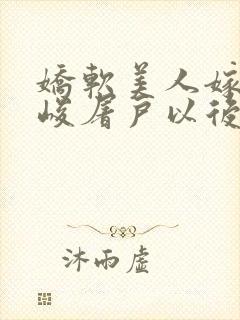 嬌軟美人嫁
峻屠戶以後
沐雨虛